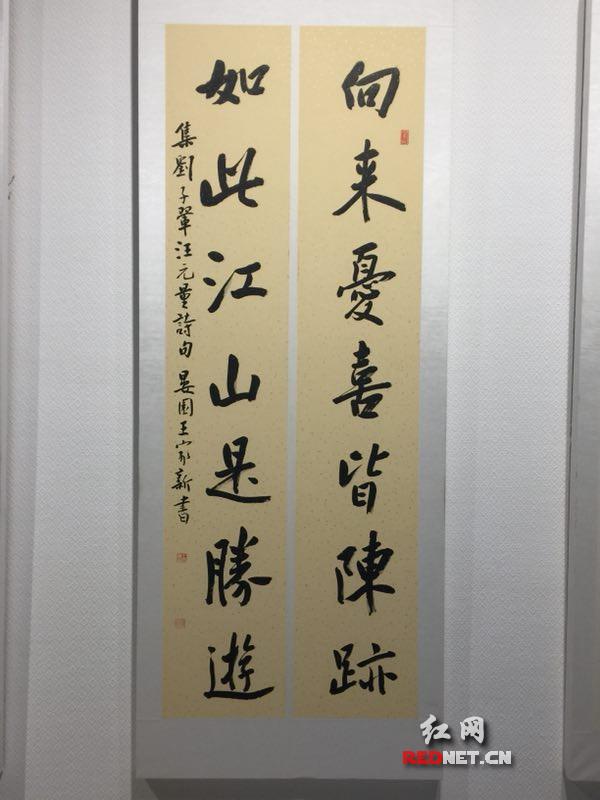 向来憂喜皆陳跡
如此江山是勝遊
集劉子翬汪元量詩句 晏園王家新書
红网
REDNET.CN